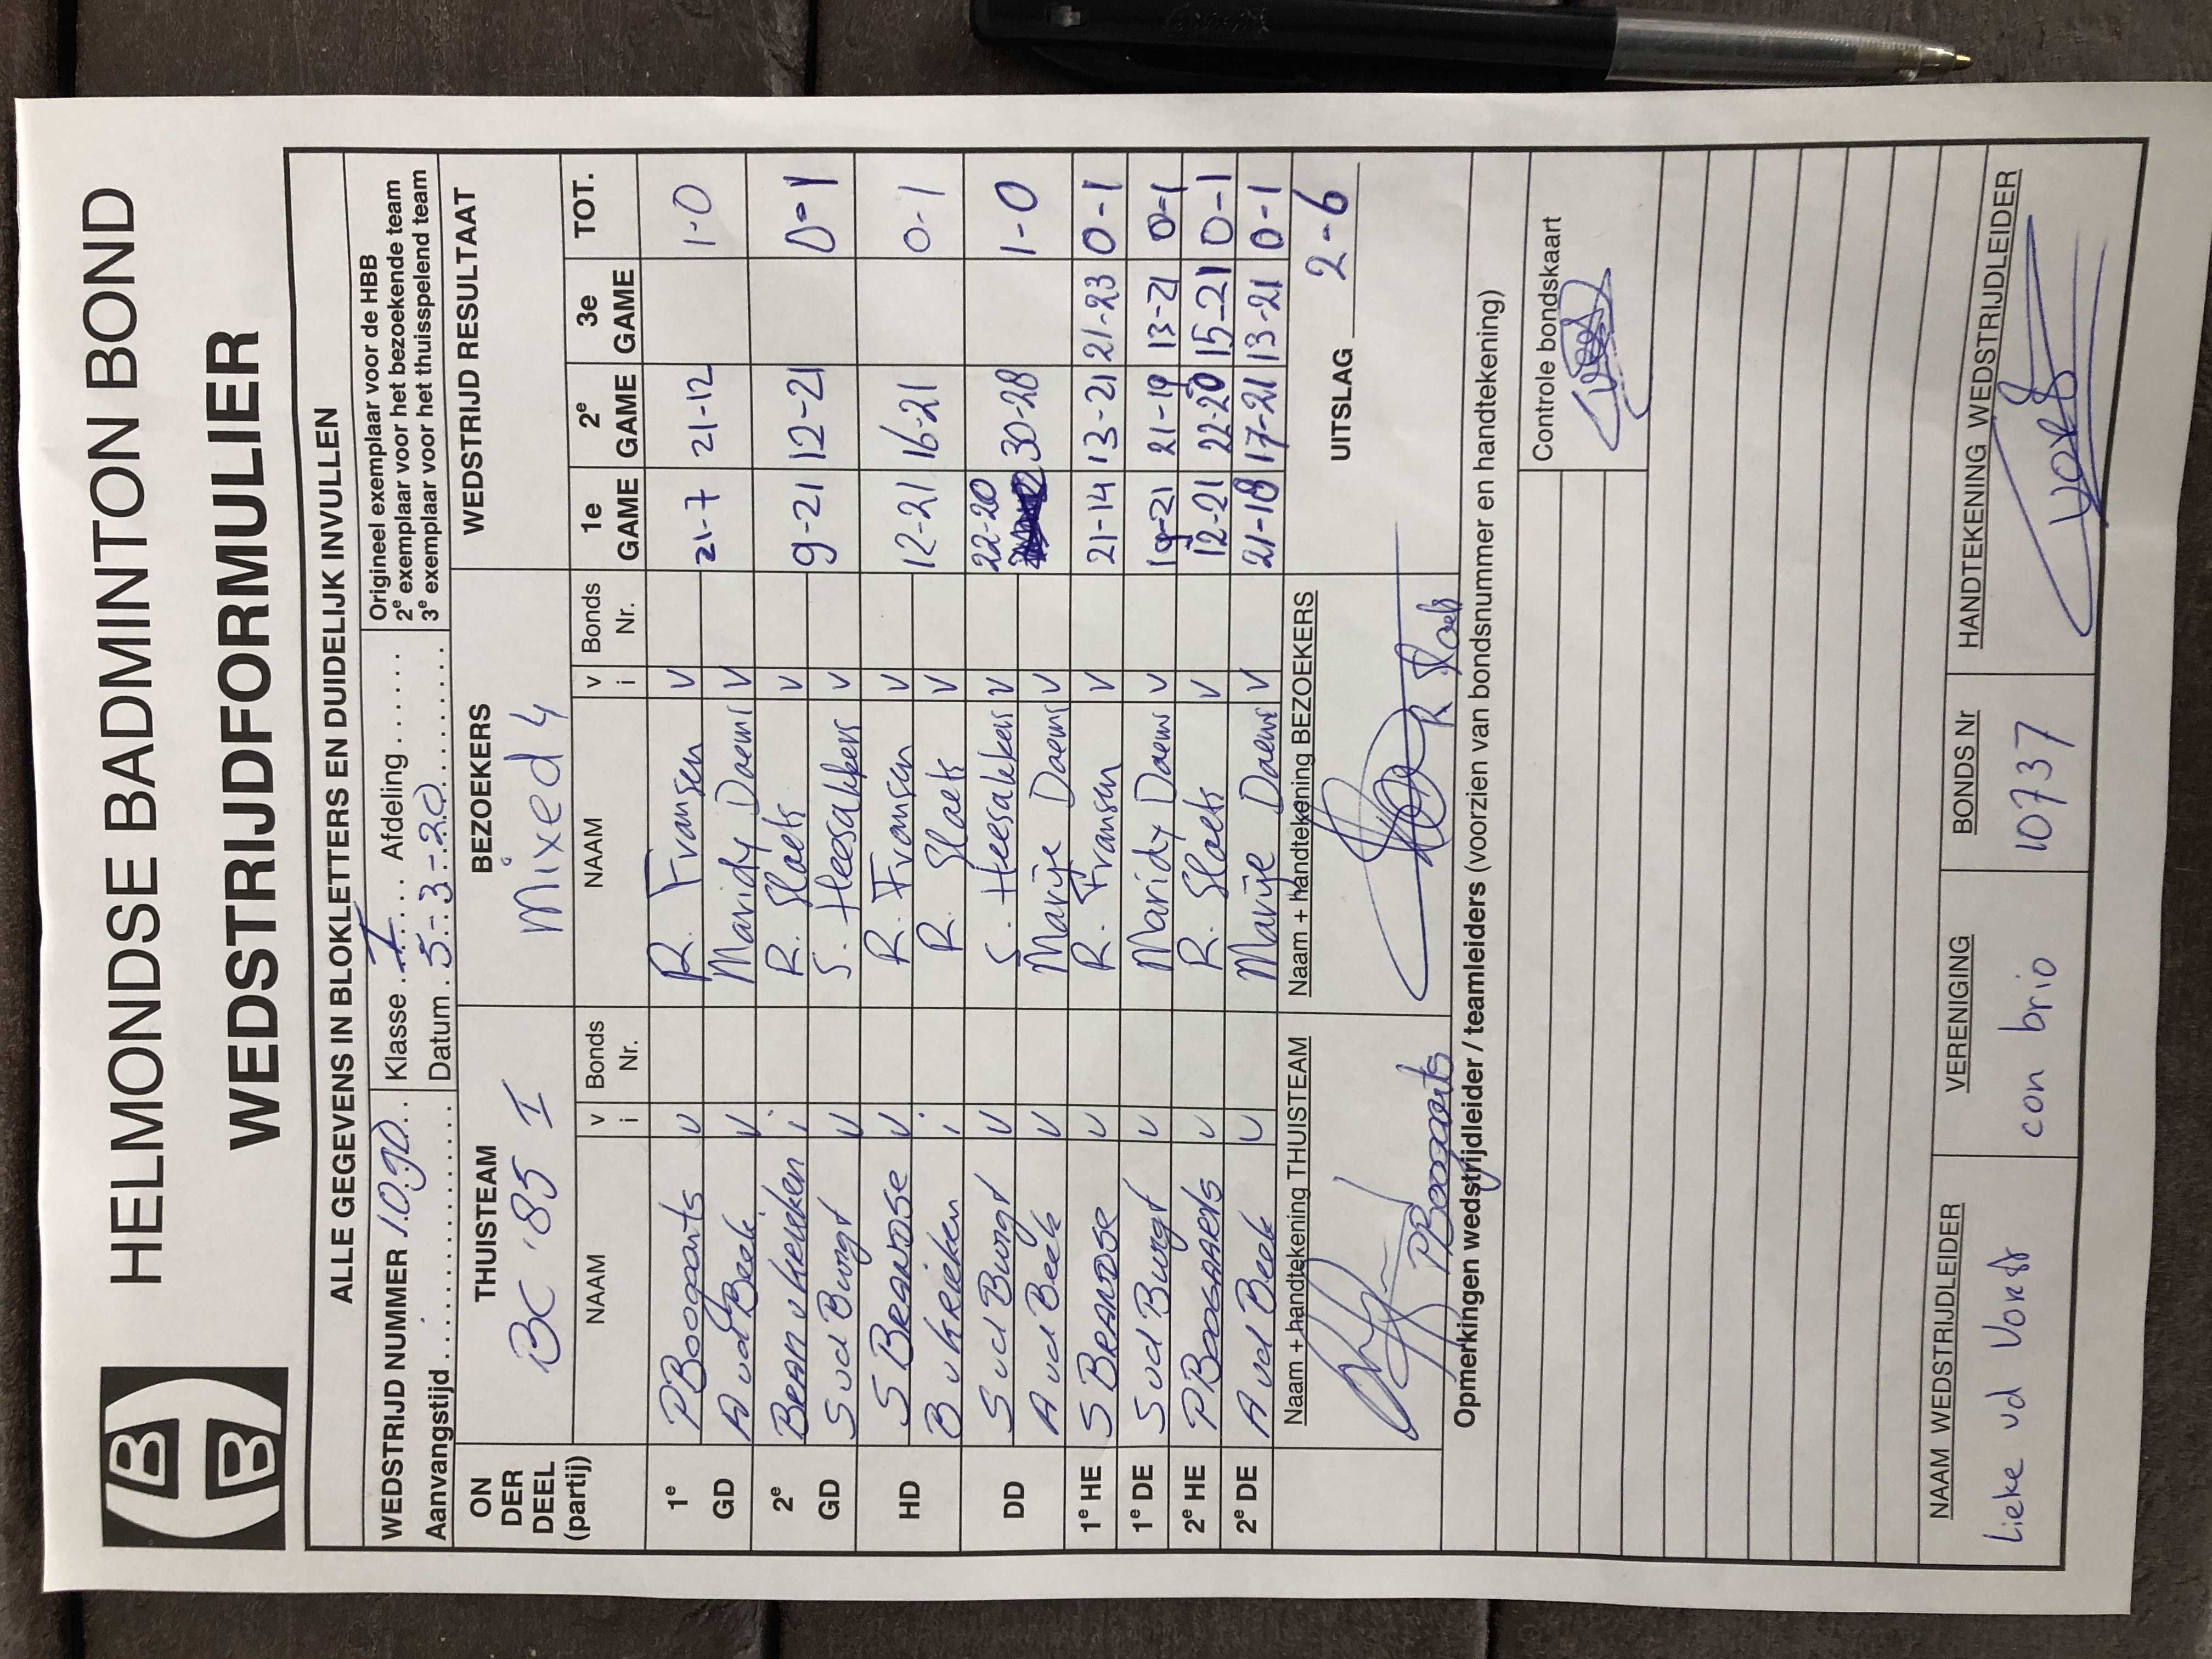 HELMONDSE BADMINTON BOND
WEDSTRIJDFORMULIER
ALLE GEGEVENS IN BLOKLETTERS EN DUIDELIJK INVULLEN
WEDSTRIJD NUMMER 1.090.. Klasse .I.... Afdeling ......
Aanvangstijd .................... Datum .5-.3-.20..........
Origineel exemplaar voor de HBB
2e exemplaar voor het bezoekende team
3e exemplaar voor het thuisspelend team
ON DER DEEL (partij) THUISTEAM BEZOEKERS WEDSTRIJD RESULTAAT
BC '85 I Mixed 4
NAAM v i Bonds Nr. NAAM v i Bonds Nr. 1e GAME 2e GAME 3e GAME TOT.
1e GD P Boogaarts v R. Fransen v 21-7 21-12 1-0
A vd Beek v Maridy Daems v
2e GD Bram v Krieken i R. Slaets v 9-21 12-21 0-1
S vd Burgt v S. Heesakkers v
HD S BRANDSE v R. Fransen v 12-21 16-21 0-1
B v Krieken i R. Slaets v
DD S vd Burgt v S. Heesakkers v 22-20 30-28 1-0
A vd Beek v Marije Daems v
1e HE S BRANDSE v R. Fransen v 21-14 13-21 21-23 0-1
1e DE S vd Burgt v Maridy Daems v 19-21 21-19 13-21 0-1
2e HE P BOOGAARTS v R. Slaets v 12-21 22-20 15-21 0-1
2e DE A vd Beek v Marije Daems v 21-18 17-21 13-21 0-1
Naam + handtekening THUISTEAM Naam + handtekening BEZOEKERS UITSLAG 2-6
P Boogaarts R Slaets
Opmerkingen wedstrijdleider / teamleiders (voorzien van bondsnummer en handtekening)
Controle bondskaart
NAAM WEDSTRIJDLEIDER VERENIGING BONDS Nr HANDTEKENING WEDSTRIJDLEIDER
Lieke vd Vorst con brio 10737 Vorst